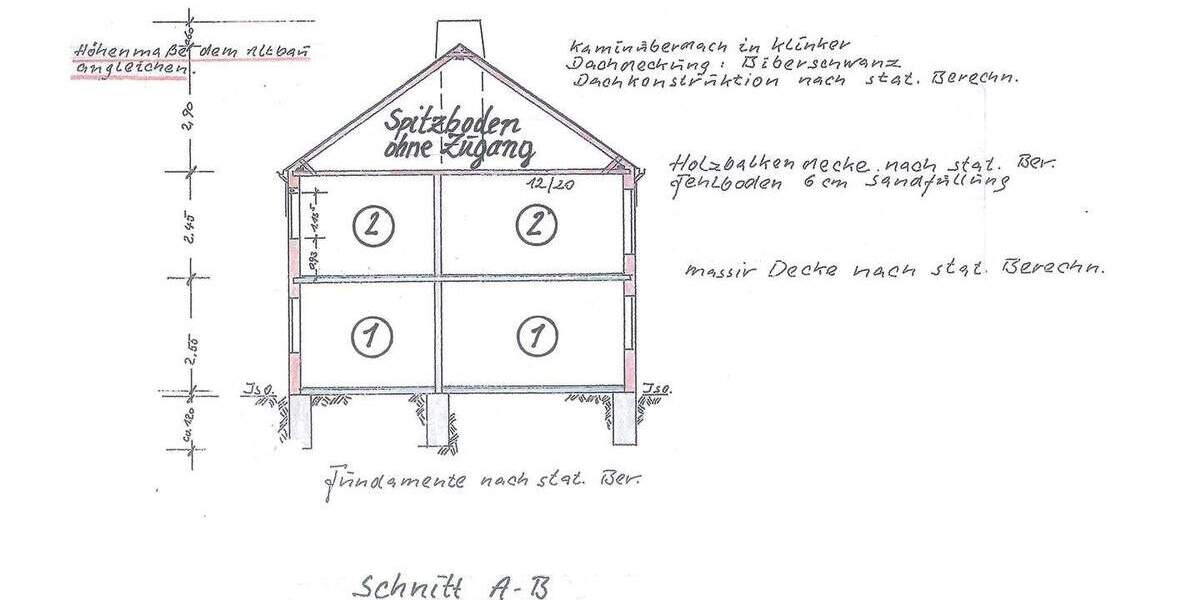 Höhenmaße dem Altbau
angleichen.
Kaminübermach in Klinker
Dachdeckung: Biberschwanz
Dachkonstruktion nach stat. Berechn.
2,90
Spitzboden
ohne Zugang
Holzbalkendecke nach stat. Ber.
Fehlboden 6 cm Sandfüllung
12/20
2.45
2
2
1.135
0,93
massiv Decke nach stat. Berechn.
2,50
1
1
Iso.
Iso.
ca 1.20
Fundamente nach stat. Ber.
Schnitt A-B